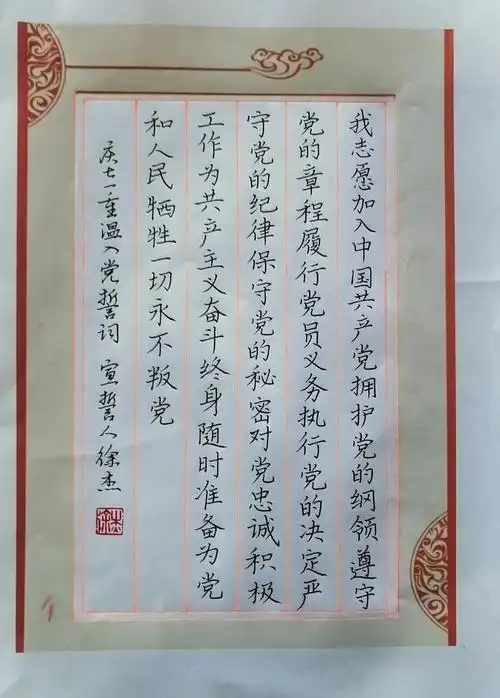 我志愿加入中国共产党拥护党的纲领遵守
党的章程履行党员义务执行党的决定严
守党的纪律保守党的秘密对党忠诚积极
工作为共产主义奋斗终身随时准备为党
和人民牺牲一切永不叛党
庆七一重温入党誓词 宣誓人徐杰